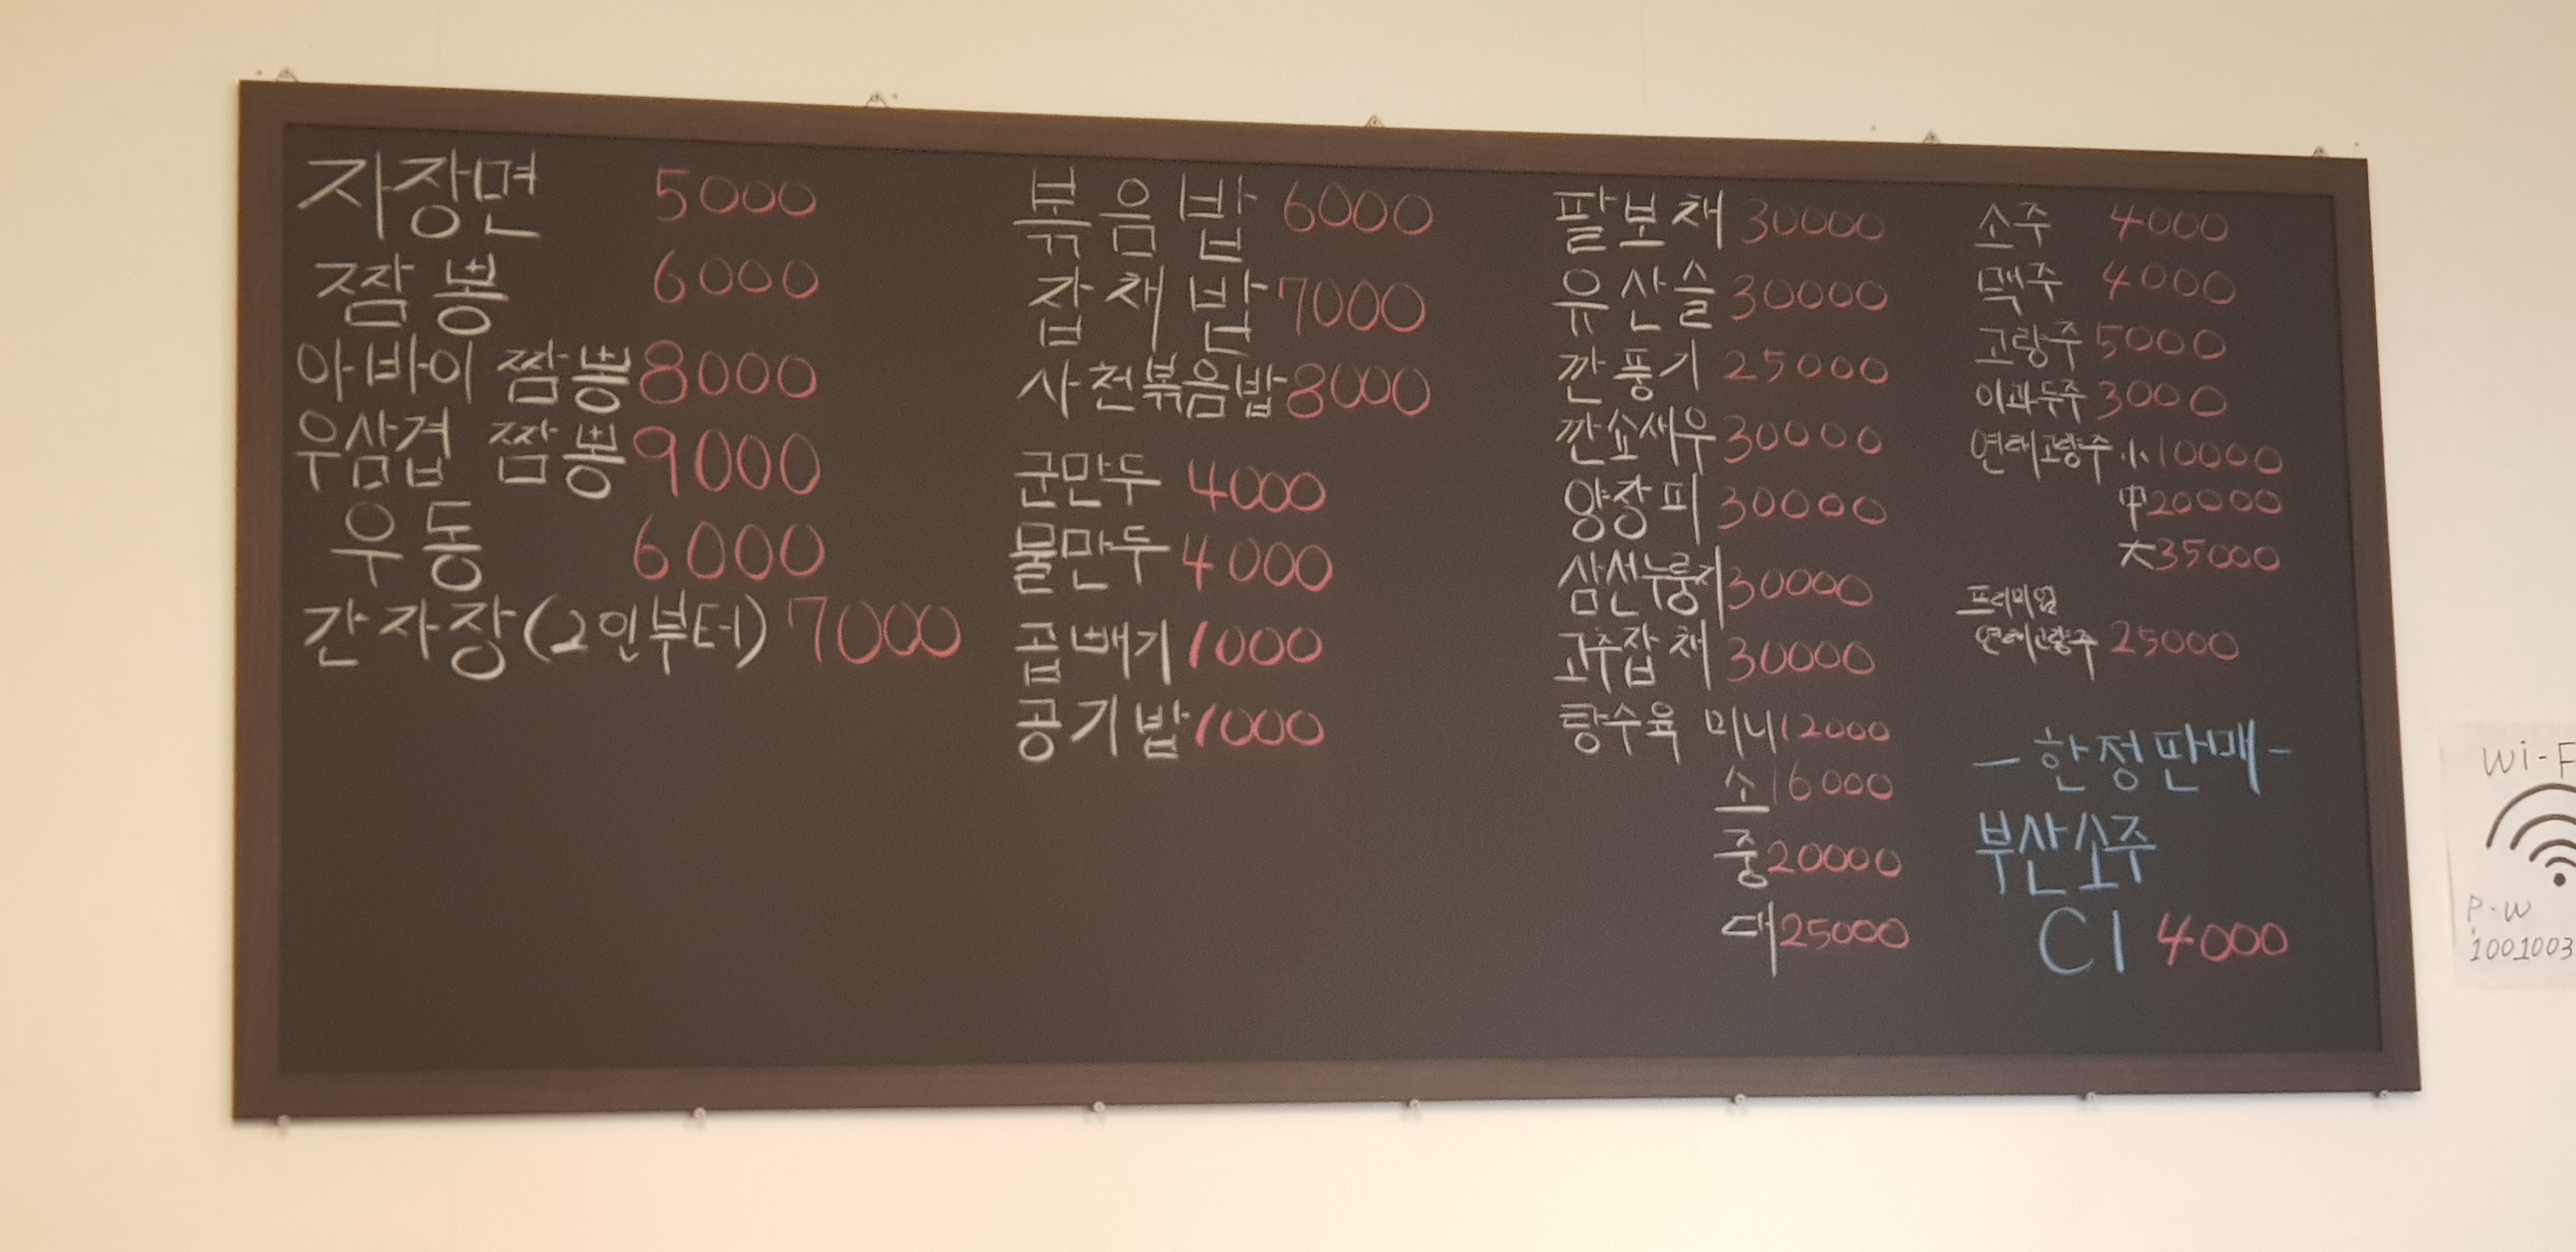 자장면 5000
짬뽕 6000
아바이 짬뽕 8000
우삼겹 짬뽕 9000
우동 6000
간자장(2인부터) 7000
볶음밥 6000
잡채밥 7000
사천볶음밥 8000
군만두 4000
물만두 4000
곱배기 1000
공기밥 1000
팔보채 30000
유산슬 30000
깐풍기 25000
깐쇼새우 30000
양장피 30000
삼선누룽지 30000
고추잡채 30000
탕수육 미니 12000
소 16000
중 20000
대 25000
소주 4000
맥주 4000
고량주 5000
이과두주 3000
연태고량주 小 10000
中 20000
大 35000
프리미엄
연태고량주 25000
-한정판매-
부산소주
C1 4000
Wi-F
P.W
1001003